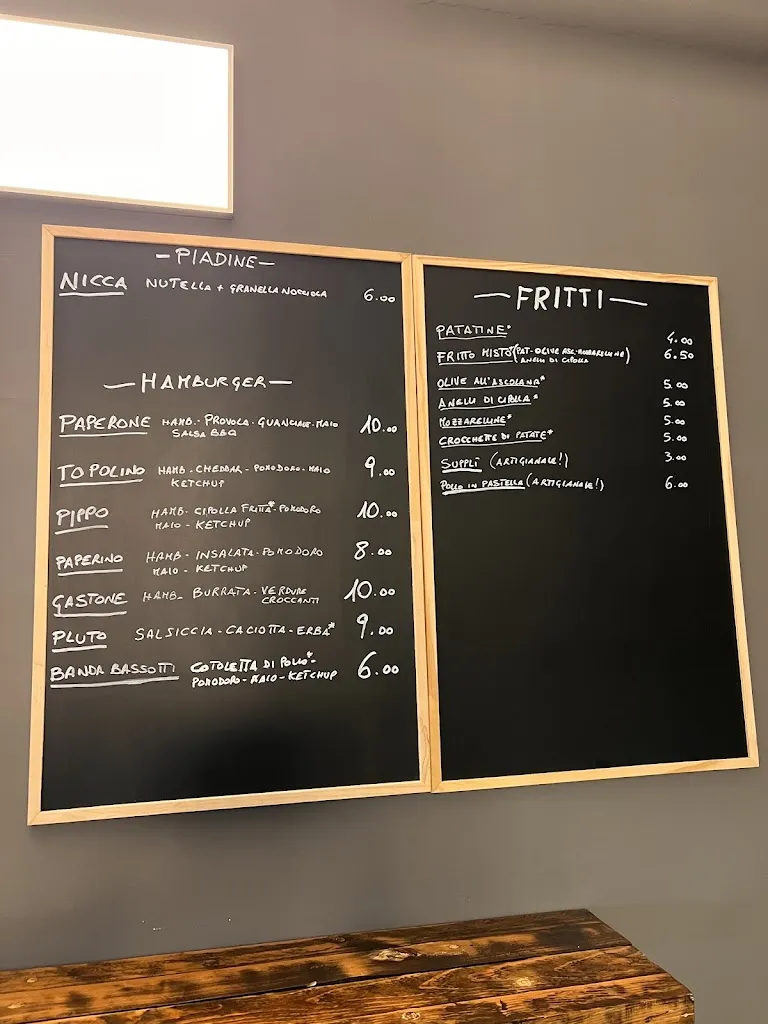 - PIADINE -
NICCA NUTELLA + GRANELLA NOCCIOLA 6.00
- HAMBURGER -
PAPERONE HAMB. - PROVOLA - GUANCIALE - MAIO 10.00
SALSA BBQ
TOPOLINO HAMB - CHEDDAR - POMODORO - MAIO 9.00
KETCHUP
PIPPO HAMB - CIPOLLA FRITTA* - POMODORO 10.00
MAIO - KETCHUP
PAPERINO HAMB - INSALATA - POMODORO 8.00
MAIO - KETCHUP
GASTONE HAMB - BURRATA - VERDURE 10.00
CROCCANTI
PLUTO SALSICCIA - CACIOTTA - ERBA* 9.00
BANDA BASSOTTI COTOLETTA DI POLLO* - 6.00
POMODORO - MAIO - KETCHUP
- FRITTI -
PATATINE* 4.00
FRITTO MISTO* (PAT - OLIVE ASC - MOZZARELLINE 6.50
ANELLI DI CIPOLLA)
OLIVE ALL'ASCOLANA* 5.00
ANELLI DI CIPOLLA* 5.00
MOZZARELLINE* 5.00
CROCCHETTE DI PATATE* 5.00
SUPPLÌ (ARTIGIANALE!) 3.00
POLLO IN PASTELLA (ARTIGIANALE!) 6.00